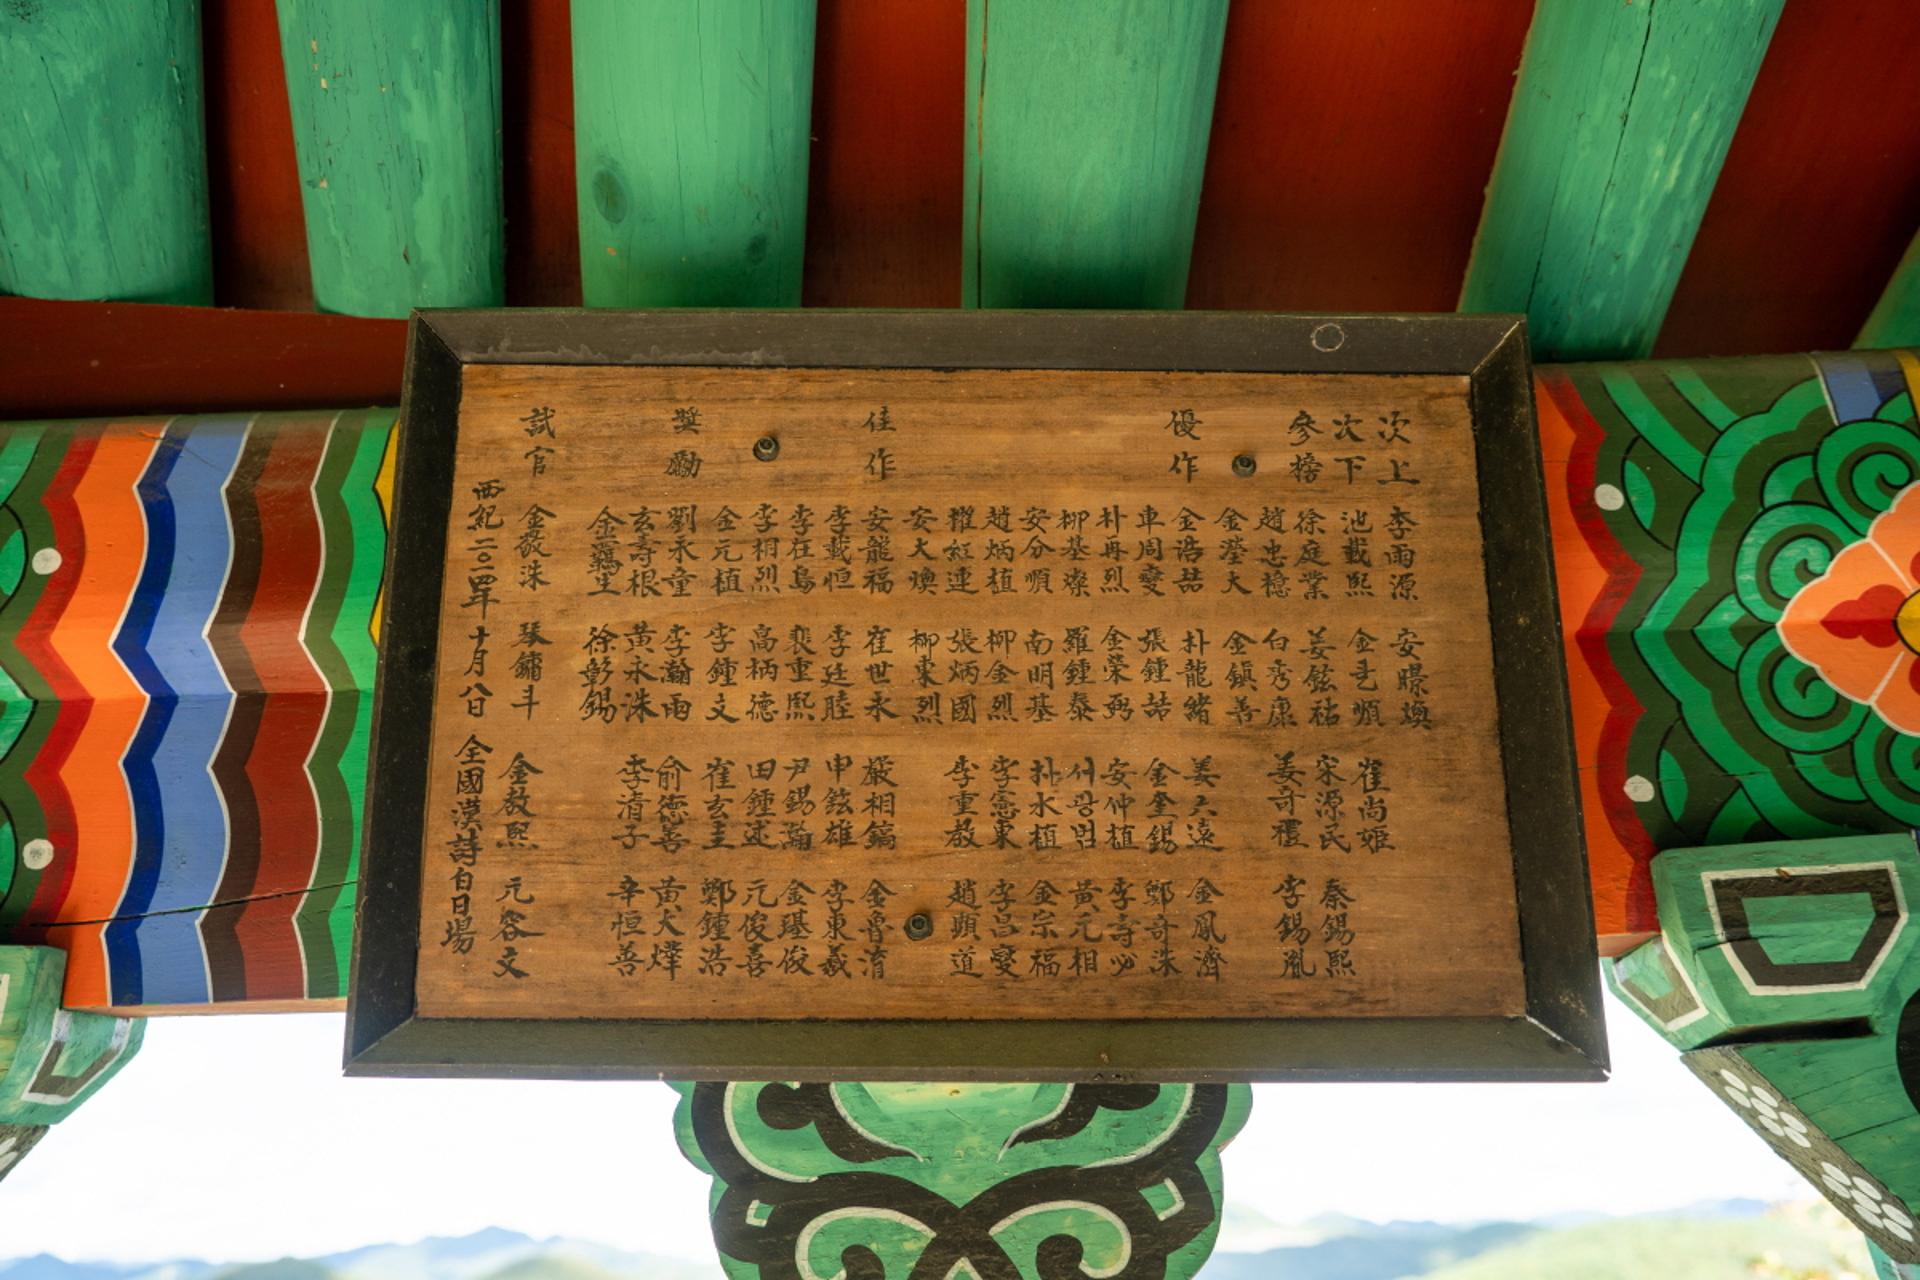 次上 李雨源 安曔煥
次下 池載熙 金더順 崔尚姬
參榜 徐庭業 姜鉉祐 宋源民 秦錫熙
趙忠穩 白秀康 姜奇禮 李錫胤
金瀅大 金鎮善
優作 金浩喆 朴龍緒 姜 遠 金鳳濟
車周燮 張鍾喆 金奎錫 鄭奇洙
朴再烈 金榮弼 安仲植 李壽必
柳基燦 羅鍾泰 서광범 黃元相
安分順 南明基 朴水植 金宗福
趙炳植 柳金烈 李憲東 李昌燮
權紅連 張炳國 李重教 趙顯道
安大煥 柳東烈
佳作 安龍福 崔世永 嚴相鎬 金魯洧
李載恒 李廷睦 申鉉雄 李東羲
李在島 裵重熙 尹錫瀚 金璂俊
李相烈 高柄德 田鍾 元俊喜
金元植 李鍾文 崔玄圭 鄭鍾浩
獎勵 劉永童 李瀚雨 俞德善 黃大燁
玄壽根 黃永洙 李清子 辛恒善
金 生 徐彰錫
試官 金敬洙 琴鏞斗 金教熙 元容文
西紀二〇二四年十月八日 全國漢詩白日場